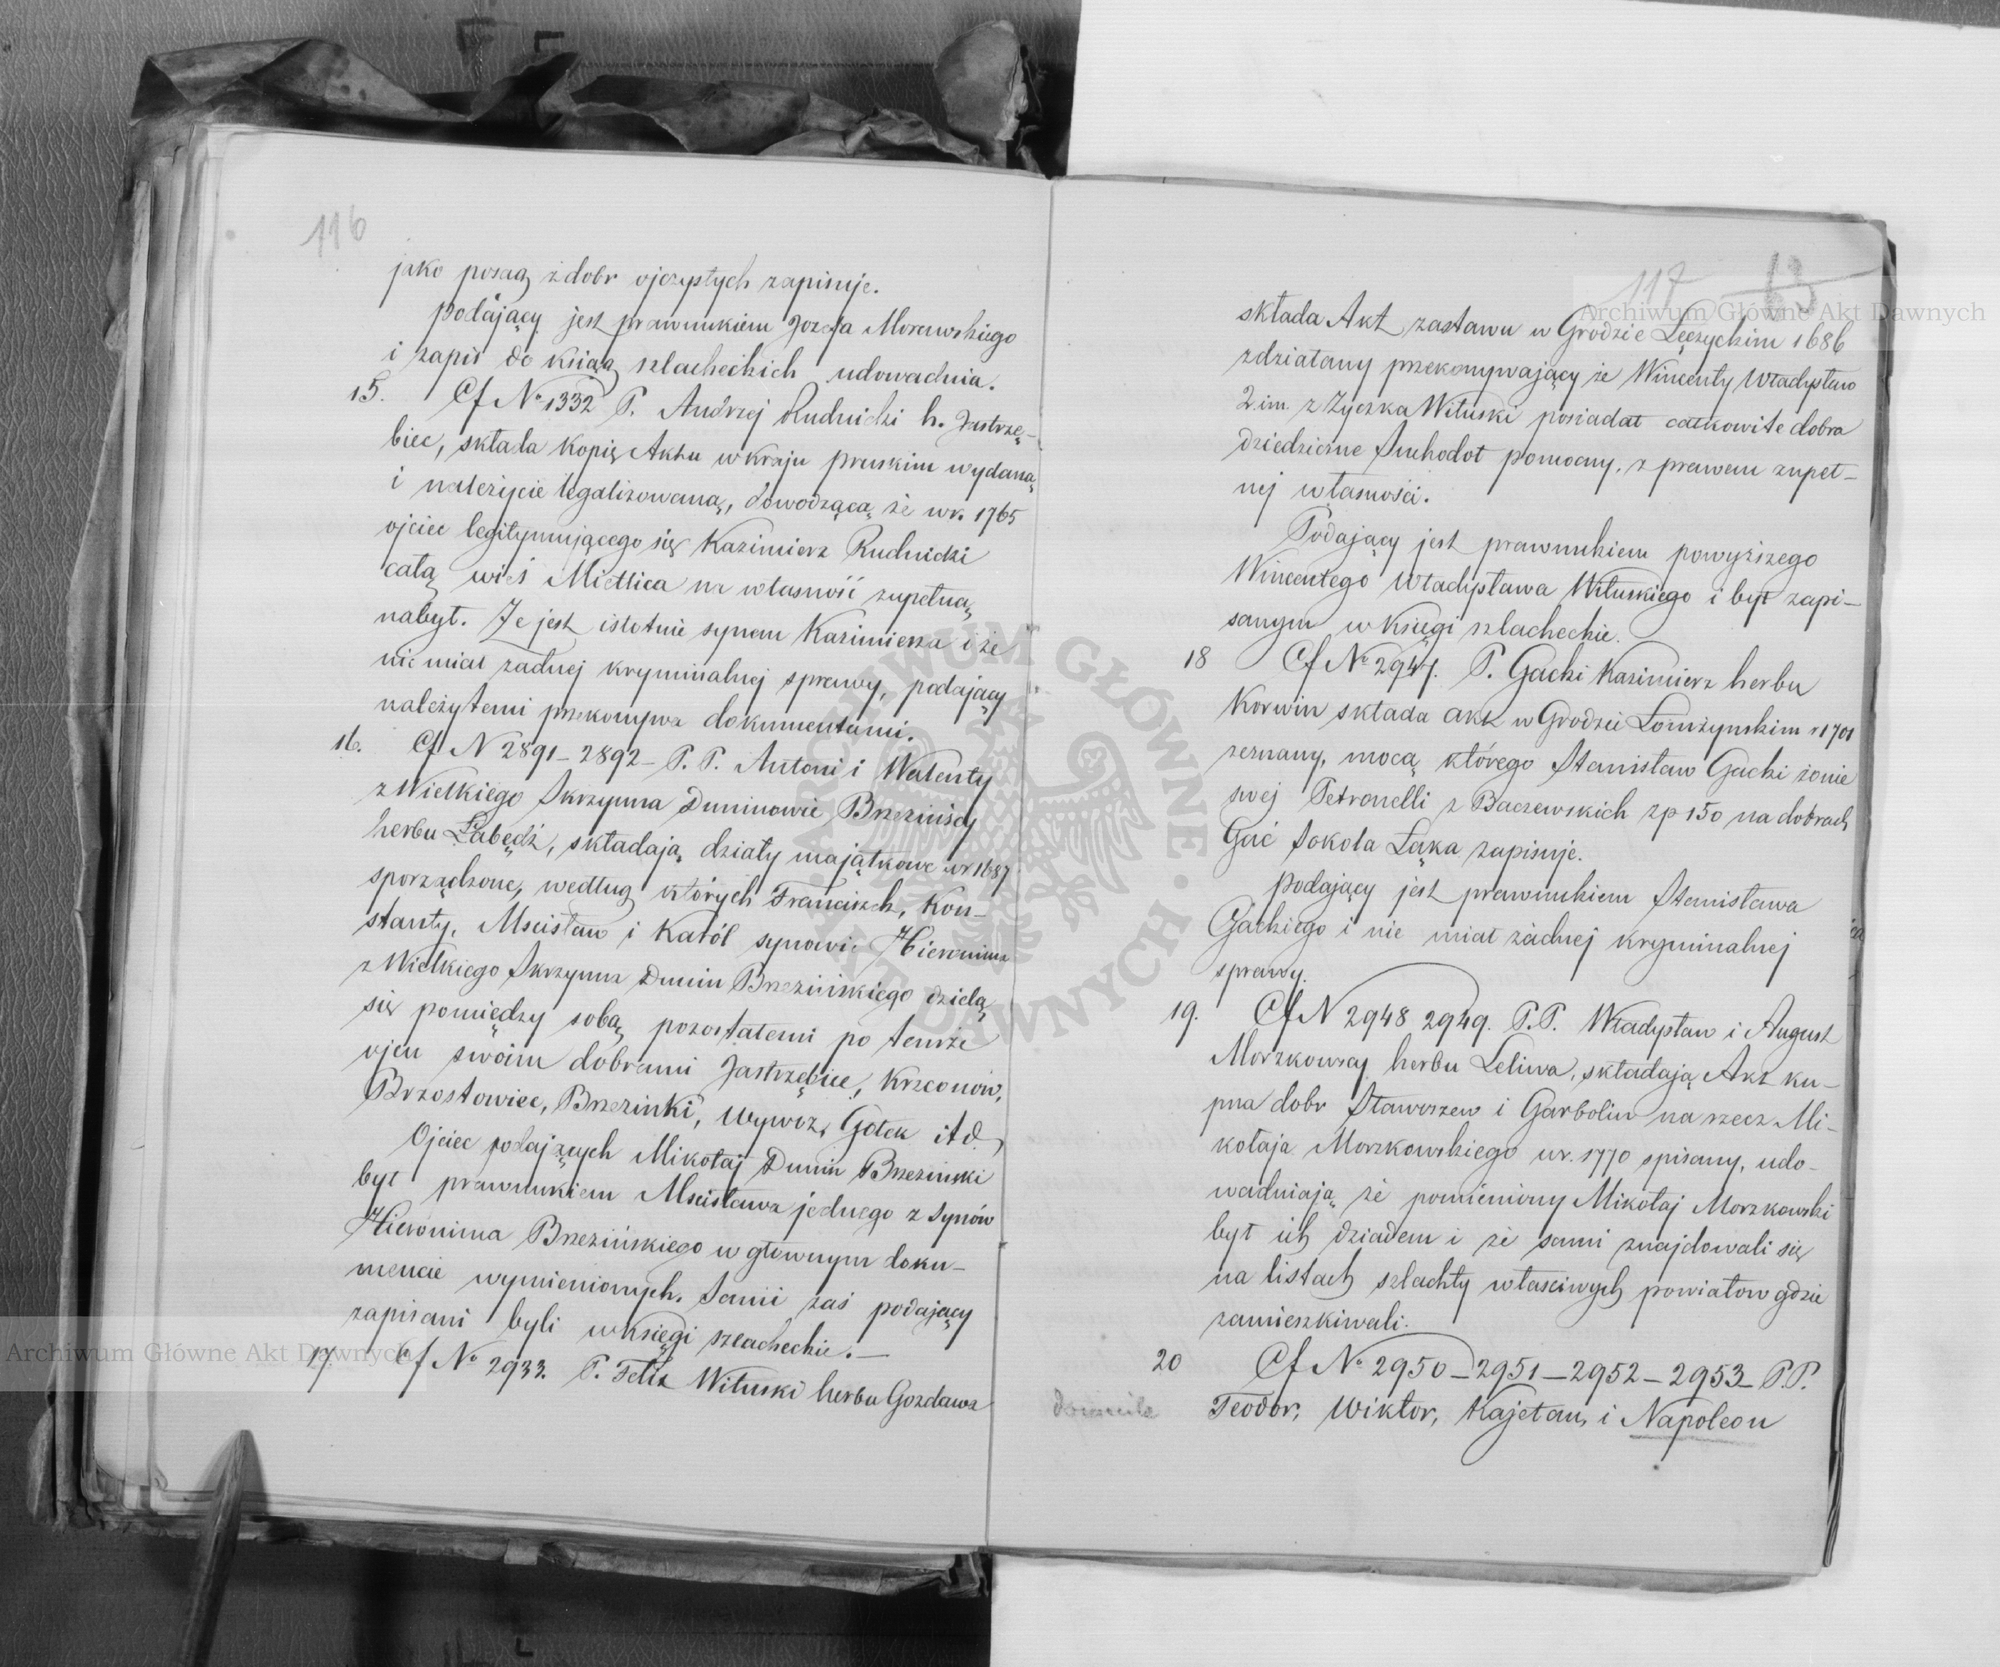 116
jako posag z dobr ojczystych zapisuje.
podający jest prawnukiem Jozefa Morawskiego
i zapis do ksiąg szlacheckich udowadnia.
15. Cf No 1332 P. Andrzej Rudnicki h. Jastrzę-
biec, składa kopię Aktu w kraju pruskim wydaną
i należycie legalizowaną, dowodzącą że w r. 1765
ojciec legitymującego się Kazimierz Rudnicki
całą wieś Mietlica na własność zupełną
nabył. Że jest istotnie synem Kazimierza i że
nie miał żadnej kryminalnej sprawy, podający
należytemi przekonywa dokumentami.
16. Cf N 2891 - 2892 - P. P. Antoni i Walenty
z Wielkiego Skrzynna Duninowie Brzezińscy
herbu Łabędź, składają działy majątkowe w r 1687
sporządzone, według których Franciszek, Kon-
stanty, Mscisław i Karól synowie Hieronima
z Wielkiego Skrzynna Dunin Brzezińskiego dzielą
się pomiędzy sobą pozostałemi po temże
ojcu swoim dobrami Jastrzębice, Krzconów,
Brzostowiec, Brzezinki, Wywoz, Gołek itd
Ojciec podających Mikołaj Dunin Brzezinski
był prawnukiem Mscisława jednego z synów
Hieronima Brzezińskiego w głownym doku-
mencie wymienionych. Sami zaś podający
zapisani byli w księgi szlacheckie. —
17. Cf No 2933. P. Felix Wituski herbu Gozdawa
117 63
składa Akt zastawu w Grodzie Łęczyckim 1686
zdziałany przekonywający że Wincenty Władysław
2 im. z Życzka Wituski posiadał całkowite dobra
dziedziczne Suchodoł pomocny, z prawem zupeł-
nej własności.
Podający jest prawnukiem powyższego
Wincentego Władysława Wituskiego i był zapi-
sanym w Księgi szlacheckie.
18 Cf No 2947. P. Gacki Kazimierz herbu
Korwin składa akt w Grodzie Łomżynskim r 1701
zeznany, mocą którego Stanisław Gacki żonie
swej Petronelli z Baczewskich zp 150 na dobrach
Gać Sokola Łąka zapisuje.
podający jest prawnukiem Stanisława
Gackiego i nie miał żadnej kryminalnej
sprawy.
19. Cf N 2948 2949. P.P. Władysław i August
Morzkowscy herbu Leliwa, składają Akt ku-
pna dobr Stawiszew i Garbolin na rzecz Mi-
kołaja Morzkowskiego w r. 1770 spisany, udo-
wadniają że pomieniony Mikołaj Morzkowski
był ich dziadem i że sami znajdowali się
na listach szlachty właściwych powiatow gdzie
zamieszkiwali.
20 Cf No 2950 - 2951 - 2952 - 2953 - P.P.
Teodor, Wiktor, Kajetan, i Napoleon
Archiwum Główne Akt Dawnych
Archiwum Główne Akt Dawnych
ARCHIWUM GŁÓWNE AKT DAWNYCH